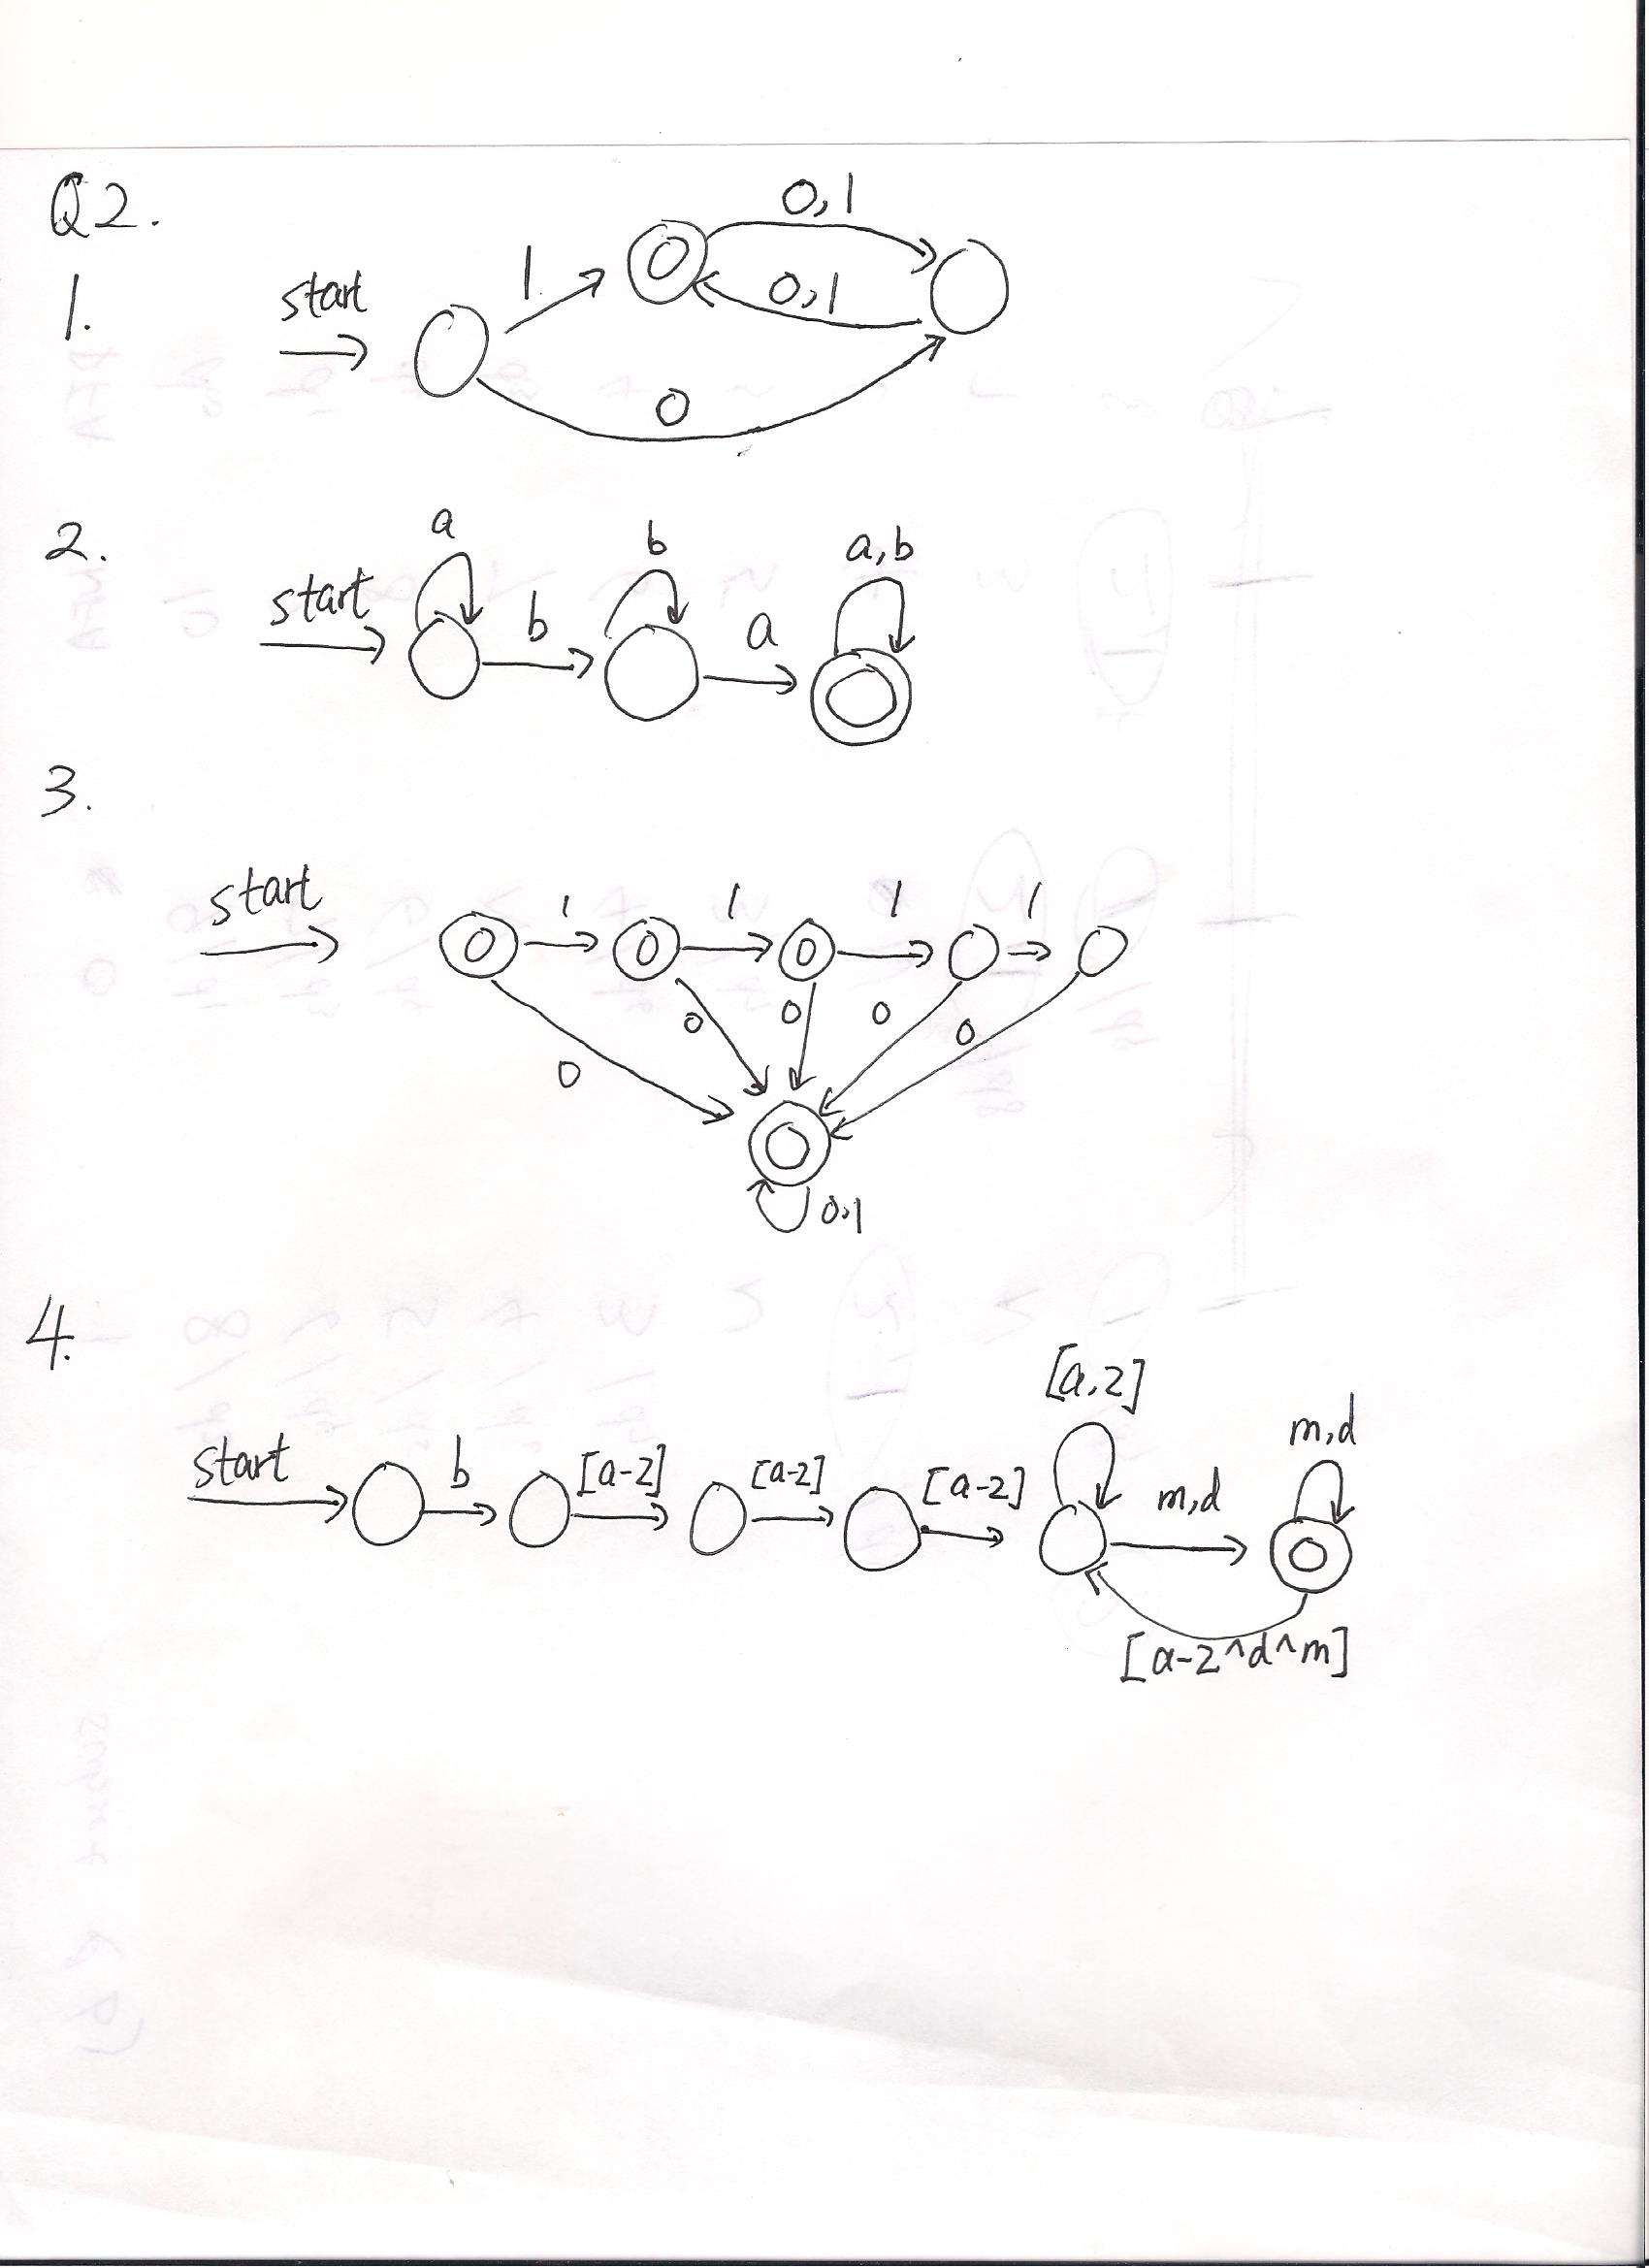 Q2.
1.
start
1
0,1
0,1
0
2.
start
a
b
b
a
a,b
3.
start
1
1
1
1
0
0
0
0
0
0,1
4.
start
b
[a-z]
[a-z]
[a-z]
[a,z]
m,d
m,d
[a-z^d^m]